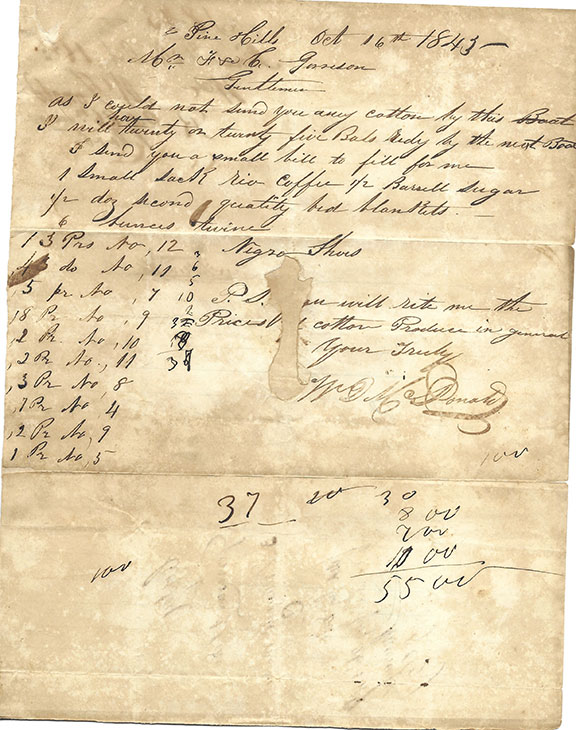 Pine Hills Oct 16th 1843
Mr F & C. Garrison
Gentlemen
as I could not send you any cotton by this Boat
I will hav twenty or twenty five Bals redy by the next Boat
I send you a small bill to fill for me
1 Small Sack rio Coffee 1/2 Barrell Sugar
1/2 doz second quality bed blankets
6 ounces
13 Prs No, 12 Negro Shoes
do No, 11
5 pr No, 7
8 Pr No, 9
2 Pr No, 10
2 Pr No, 11
3 Pr No, 8
1 Pr No, 4
2 Pr No, 9
1 Pr No, 5
6
5
10
2
P. S. you will rite me the
Prices of cotton Produce in general
Your Truly
Wm D McDonald
100
37
20
30
8 00
7 00
10 00
55 00
100